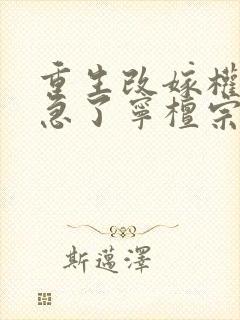 重生改嫁權
急了寧檀宗
斯邁澤